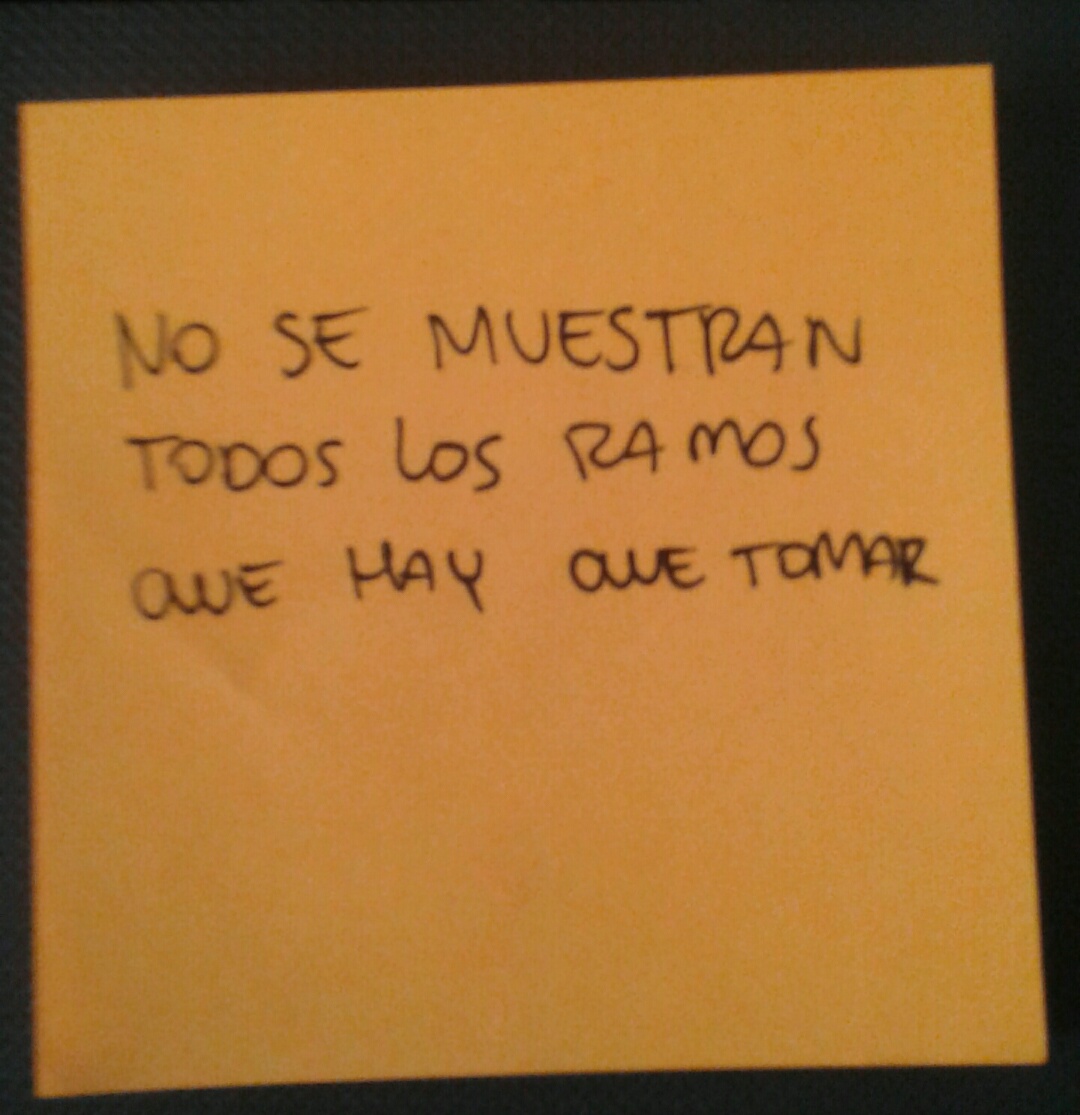 NO SE MUESTRAN
TODOS LOS RAMOS
QUE HAY QUE TOMAR